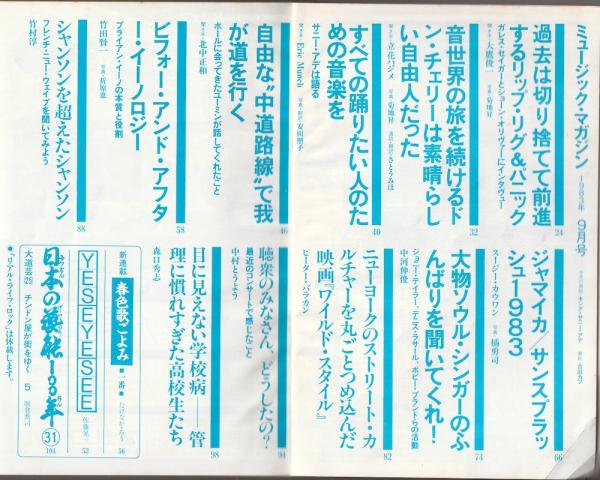 ミュージック・マガジン
1983年 9月号
過去は切り捨てて前進
するリップ・リグ&パニック
ガレス・セイガーとショーン・オリヴァーにインタヴュー
聞き手・大鷹俊一
写真・菊地昇
24
音世界の旅を続けるド
ン・チェリーは素晴らし
い自由人だった
聞き手・立花ハジメ
写真・菊地昇
32
すべての踊りたい人のた
めの音楽を
サニー・アデは語る
聞き手・Eric Munch
安田照子
40
自由な“中道路線”で我
が道を行く
ポールに会ってきたユーミンが話してくれたこと
聞き手・北中正和
46
ビフォー・アンド・アフタ
ー・イーノロジー
ブライアン・イーノの本質と役割
竹田賢一
写真・折原恵
58
シャンソンを超えたシャンソン
フレンチ・ニュー・ウェイブを聞いてみよう
竹村淳
88
ジャマイカ/サンスプラッ
シュ1983
スージー・カウワン
写真・橘勇司
66
大物ソウル・シンガーのふ
んばりを聞いてくれ!
ジョニー・テイラー、デニス・ラサール、ボビー・ブランドらの活動
中河伸俊
74
ニューヨークのストリート・カ
ルチャーを丸ごとつめ込んだ
映画『ワイルド・スタイル』
ピーター・バラカン
82
聴衆のみなさん、どうしたの?
最近のコンサートで感じたこと
中村とうよう
94
目に見えない学校病——管
理に慣れすぎた高校生たち
森口秀志
98
新連載
春色歌ごよみ
■一番■
たけなかろう
56
YESEYESEE
佐藤晃一
52
日本の藝能100年
㉛
大道芸㉕ チンドン屋が街をゆく 5
朝倉喬司
104
●「リアル・ライフ・ロック」は休載します。